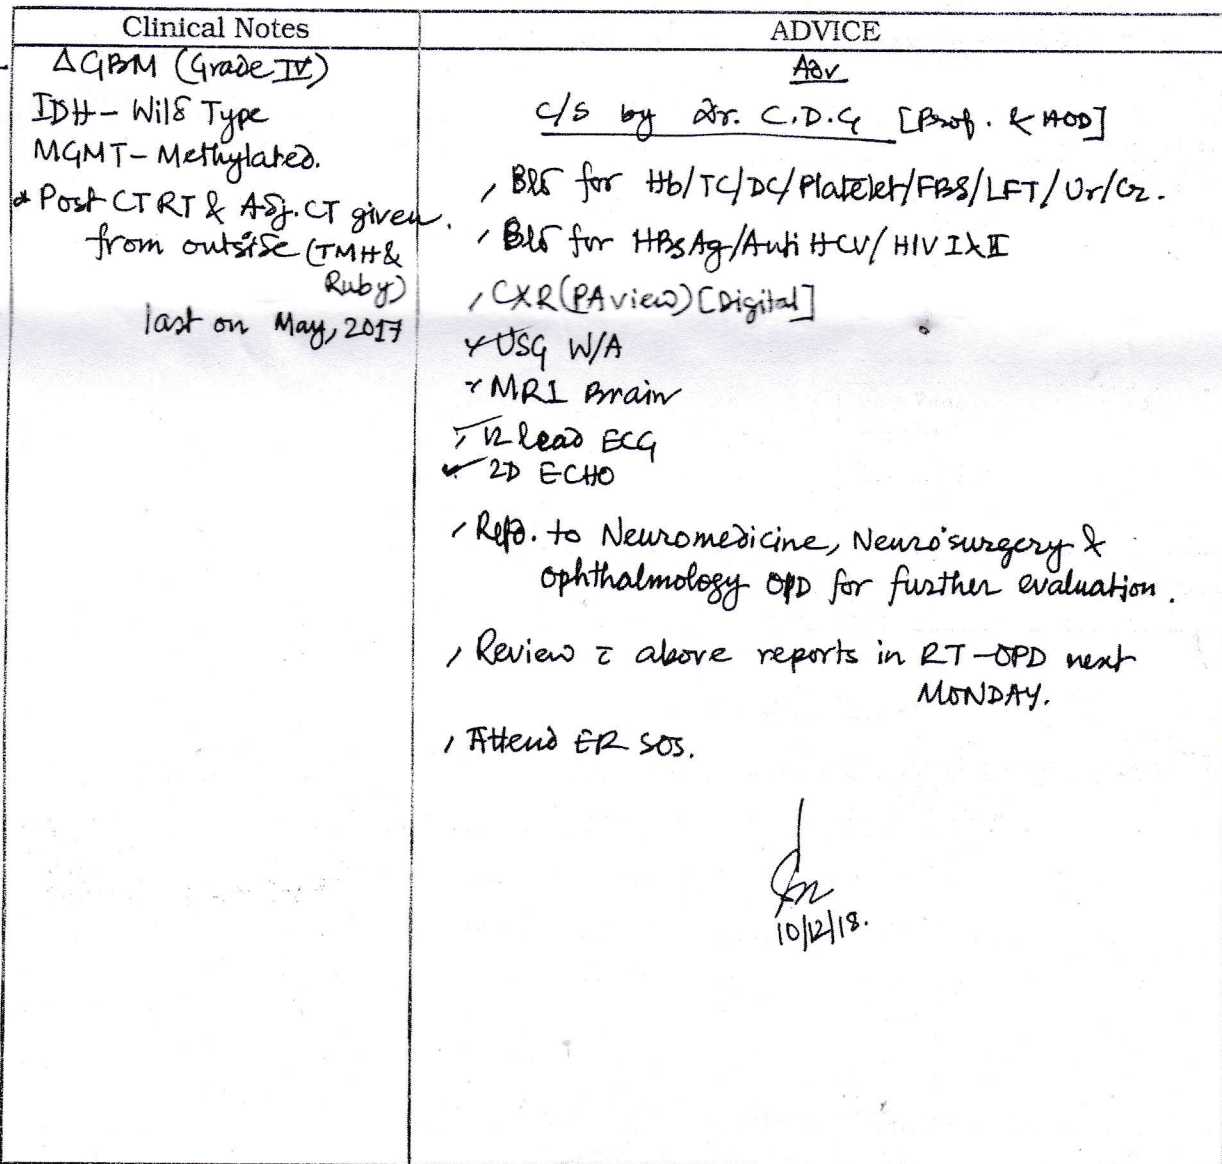 Clinical Notes
Δ GBM (Grade IV)
IDH - Wild Type
MGMT - Methylated.
* Post CTRT & Adj. CT given
from outside (TMH &
Ruby)
last on May, 2017
ADVICE
Adv
C/S by Dr. C.D.G [Prof. & HOD]
Bld for Hb/TC/DC/Platelet/FBS/LFT/Ur/Cr.
Bld for HBsAg/Anti HCV/HIV I & II
CXR (PA view) [Digital]
USG W/A
MRI Brain
12 lead ECG
✓ 2D ECHO
Refd. to Neuromedicine, Neurosurgery &
Ophthalmology OPD for further evaluation.
Review c̄ above reports in RT-OPD next
MONDAY.
Attend ER SOS.
10/12/18.